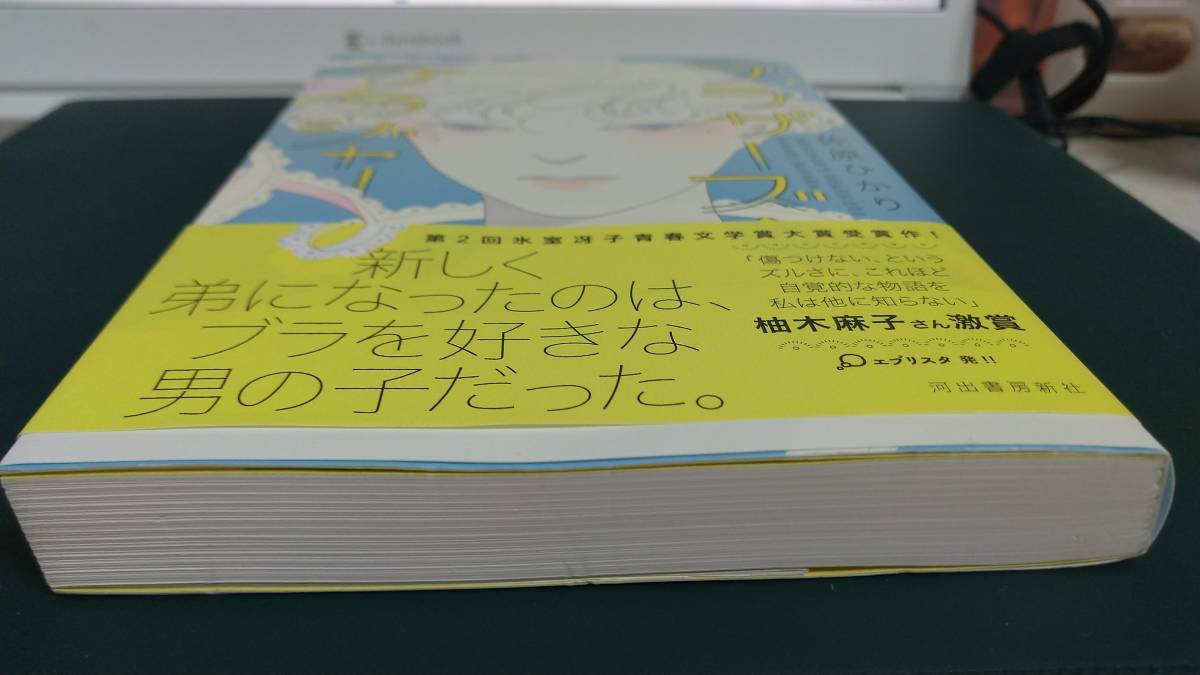 ブラザーズ・
ブラジャー
佐原ひから
第2回氷室冴子青春文学賞大賞受賞作!
新しく
弟になったのは、
ブラを好きな
男の子だった。
「傷つけない、という
ズルさに、これほど
自覚的な物語を
私は他に知らない」
柚木麻子さん激賞
エブリスタ 発!!
河出書房新社